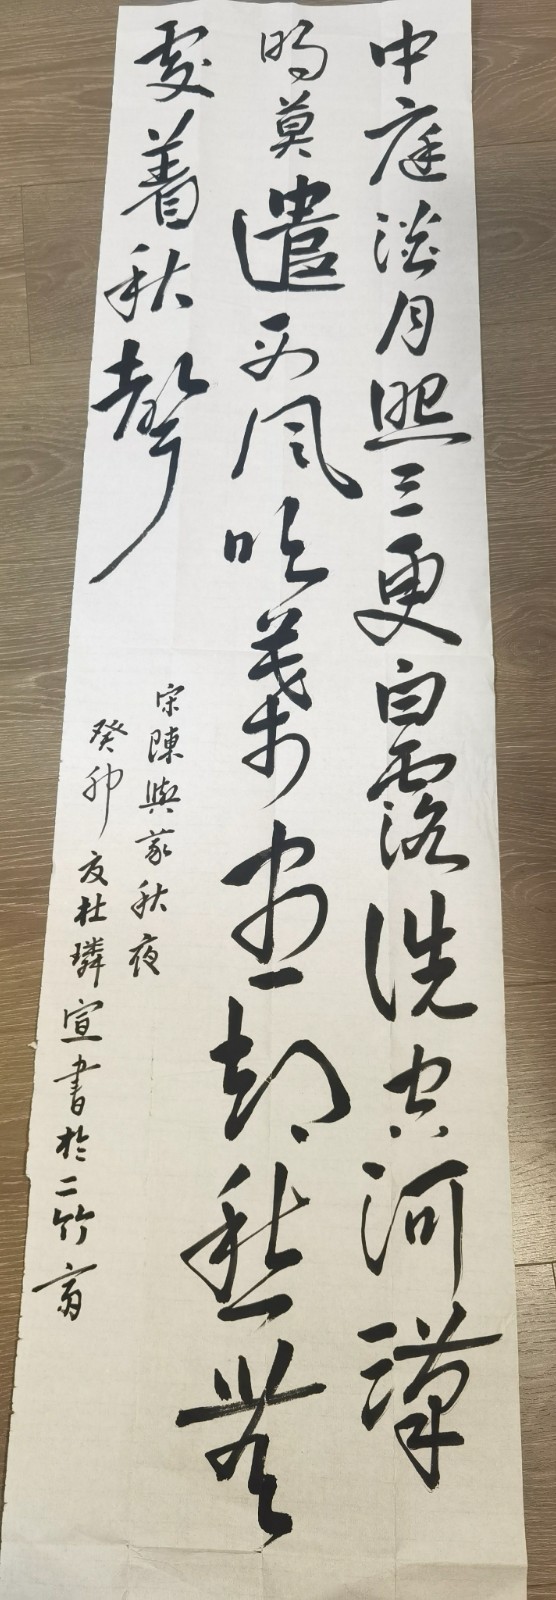 中庭淡月照三更白露洗空河漢
明莫遣西風吹葉盡却愁無
處着秋聲
宋陳與義秋夜
癸卯友杜璘宣書於二竹齋